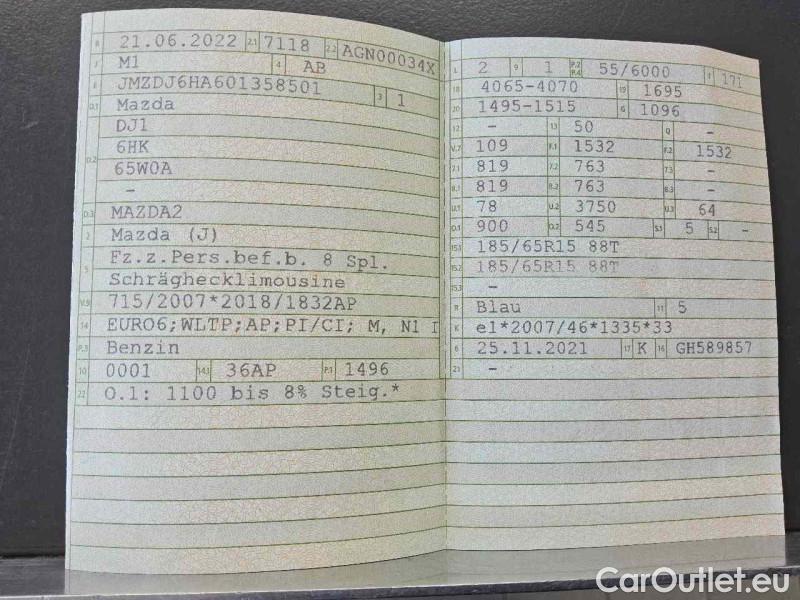 B 21.06.2022 2.1 7118 2.2 AGN00034X
J M1 4 AB
E JMZDJ6HA601358501 3 1
D.1 Mazda
DJ1
D.2 6HK
65W0A
-
D.3 MAZDA2
2 Mazda (J)
5 Fz.z.Pers.bef.b. 8 Spl.
Schräghecklimousine
V.9 715/2007*2018/1832AP
14 EURO6;WLTP;AP;PI/CI; M, N1 I
P.3 Benzin
10 0001 14.1 36AP P.1 1496
22 O.1: 1100 bis 8% Steig.*
L 2 9 1 P.2 P.4 55/6000 T 171
18 4065-4070 19 1695
20 1495-1515 G 1096
12 - 13 50 Q -
V.7 109 F.1 1532 F.2 1532
7.1 819 7.2 763 7.3 -
8.1 819 8.2 763 8.3 -
U.1 78 U.2 3750 U.3 64
O.1 900 O.2 545 S.1 5 S.2 -
15.1 185/65R15 88T
15.2 185/65R15 88T
15.3 -
R Blau 11 5
K e1*2007/46*1335*33
6 25.11.2021 17 K 16 GH589857
21 -
CarOutlet.eu